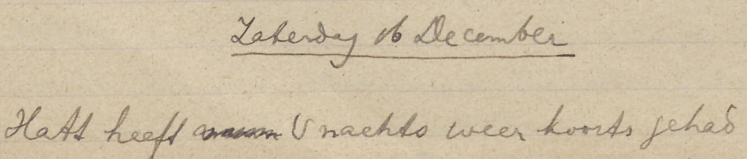 Zaterdag 16 December
Hatt heeft 's nachts weer koorts gehad